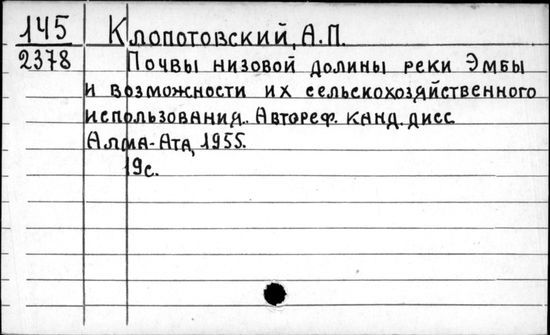 145 Клопотовский, А.П.
2378 Почвы низовой долины реки Эмбы
и возможности их сельскохозяйственного
использования. Автореф. канд. дисс.
Алма-Ата, 1955.
19с.